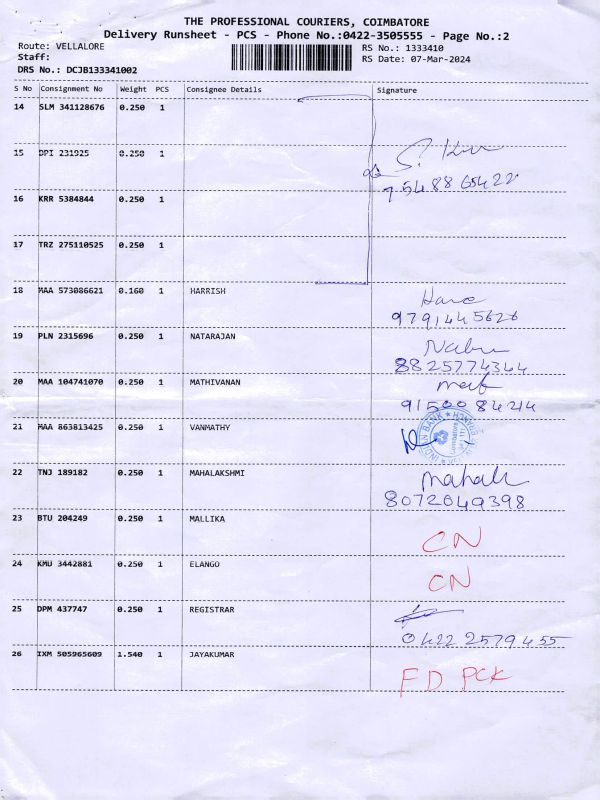 THE PROFESSIONAL COURIERS, COIMBATORE
Delivery Runsheet - PCS - Phone No.:0422-3505555 - Page No.:2
Route: VELLALORE RS No.: 1333410
Staff: RS Date: 07-Mar-2024
DRS No.: DCJB133341002
S No Consignment No Weight PCS Consignee Details Signature
14 SLM 341128676 0.250 1
15 DPI 231925 0.250 1
7548865422
16 KRR 5384844 0.250 1
17 TRZ 275110525 0.250 1
18 MAA 573086621 0.160 1 HARRISH
9791445626
19 PLN 2315696 0.250 1 NATARAJAN
8825774344
20 MAA 104741070 0.250 1 MATHIVANAN
9150084214
21 MAA 863813425 0.250 1 VANMATHY
INDIAN BANK
Coimbatore
22 TNJ 189182 0.250 1 MAHALAKSHMI
8072049398
23 BTU 204249 0.250 1 MALLIKA
CN
24 KMU 3442881 0.250 1 ELANGO
CN
25 DPM 437747 0.250 1 REGISTRAR
0422 2579455
26 IXM 505965609 1.540 1 JAYAKUMAR
FD PCK